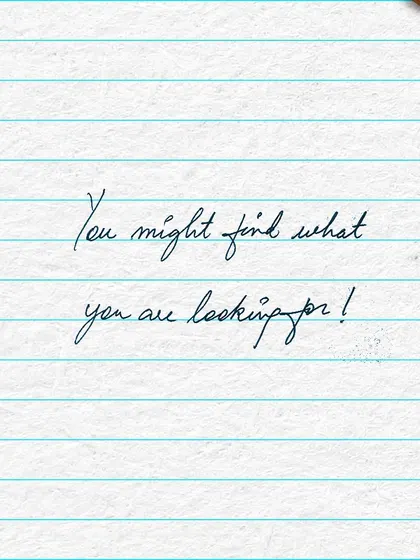 You might find what
you are looking for!